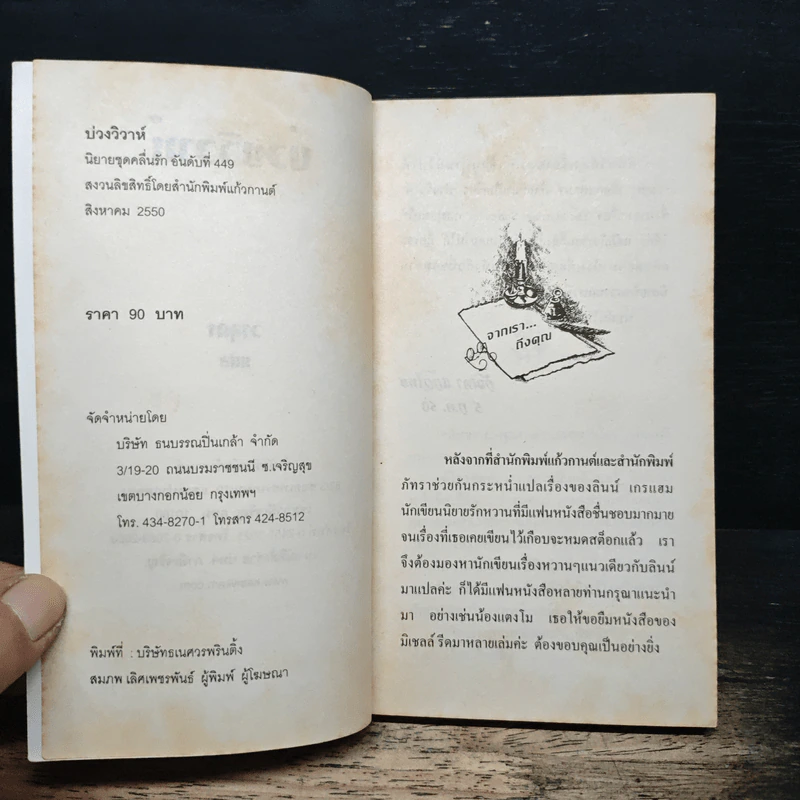 บ่วงวิวาห์
นิยายชุดคลื่นรัก อันดับที่ 449
สงวนลิขสิทธิ์โดยสำนักพิมพ์แก้วกานต์
สิงหาคม 2550
ราคา 90 บาท
จัดจำหน่ายโดย
บริษัท ธนบรรณปิ่นเกล้า จำกัด
3/19-20 ถนนบรมราชชนนี ซ.เจริญสุข
เขตบางกอกน้อย กรุงเทพฯ
โทร. 434-8270-1 โทรสาร 424-8512
พิมพ์ที่ : บริษัทธเนศวรพรินติ้ง
สมภพ เลิศเพชรพันธ์ ผู้พิมพ์ ผู้โฆษณา
จากเรา...
ถึงคุณ
หลังจากที่สำนักพิมพ์แก้วกานต์และสำนักพิมพ์
ภัทราช่วยกันกระหน่ำแปลเรื่องของลินน์ เกรแฮม
นักเขียนนิยายรักหวานที่มีแฟนหนังสือชื่นชอบมากมาย
จนเรื่องที่เธอเคยเขียนไว้เกือบจะหมดสต็อกแล้ว เรา
จึงต้องมองหานักเขียนเรื่องหวานๆแนวเดียวกับลินน์
มาแปลค่ะ ก็ได้มีแฟนหนังสือหลายท่านกรุณาแนะนำ
มา อย่างเช่นน้องแตงโม เธอให้ขอยืมหนังสือของ
มิเชลล์ รีดมาหลายเล่มค่ะ ต้องขอบคุณเป็นอย่างยิ่ง